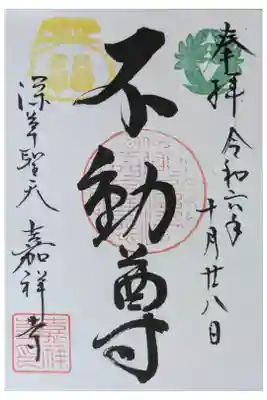 奉拝 令和六年
十月廿八日
不動尊
深草聖天 嘉祥寺